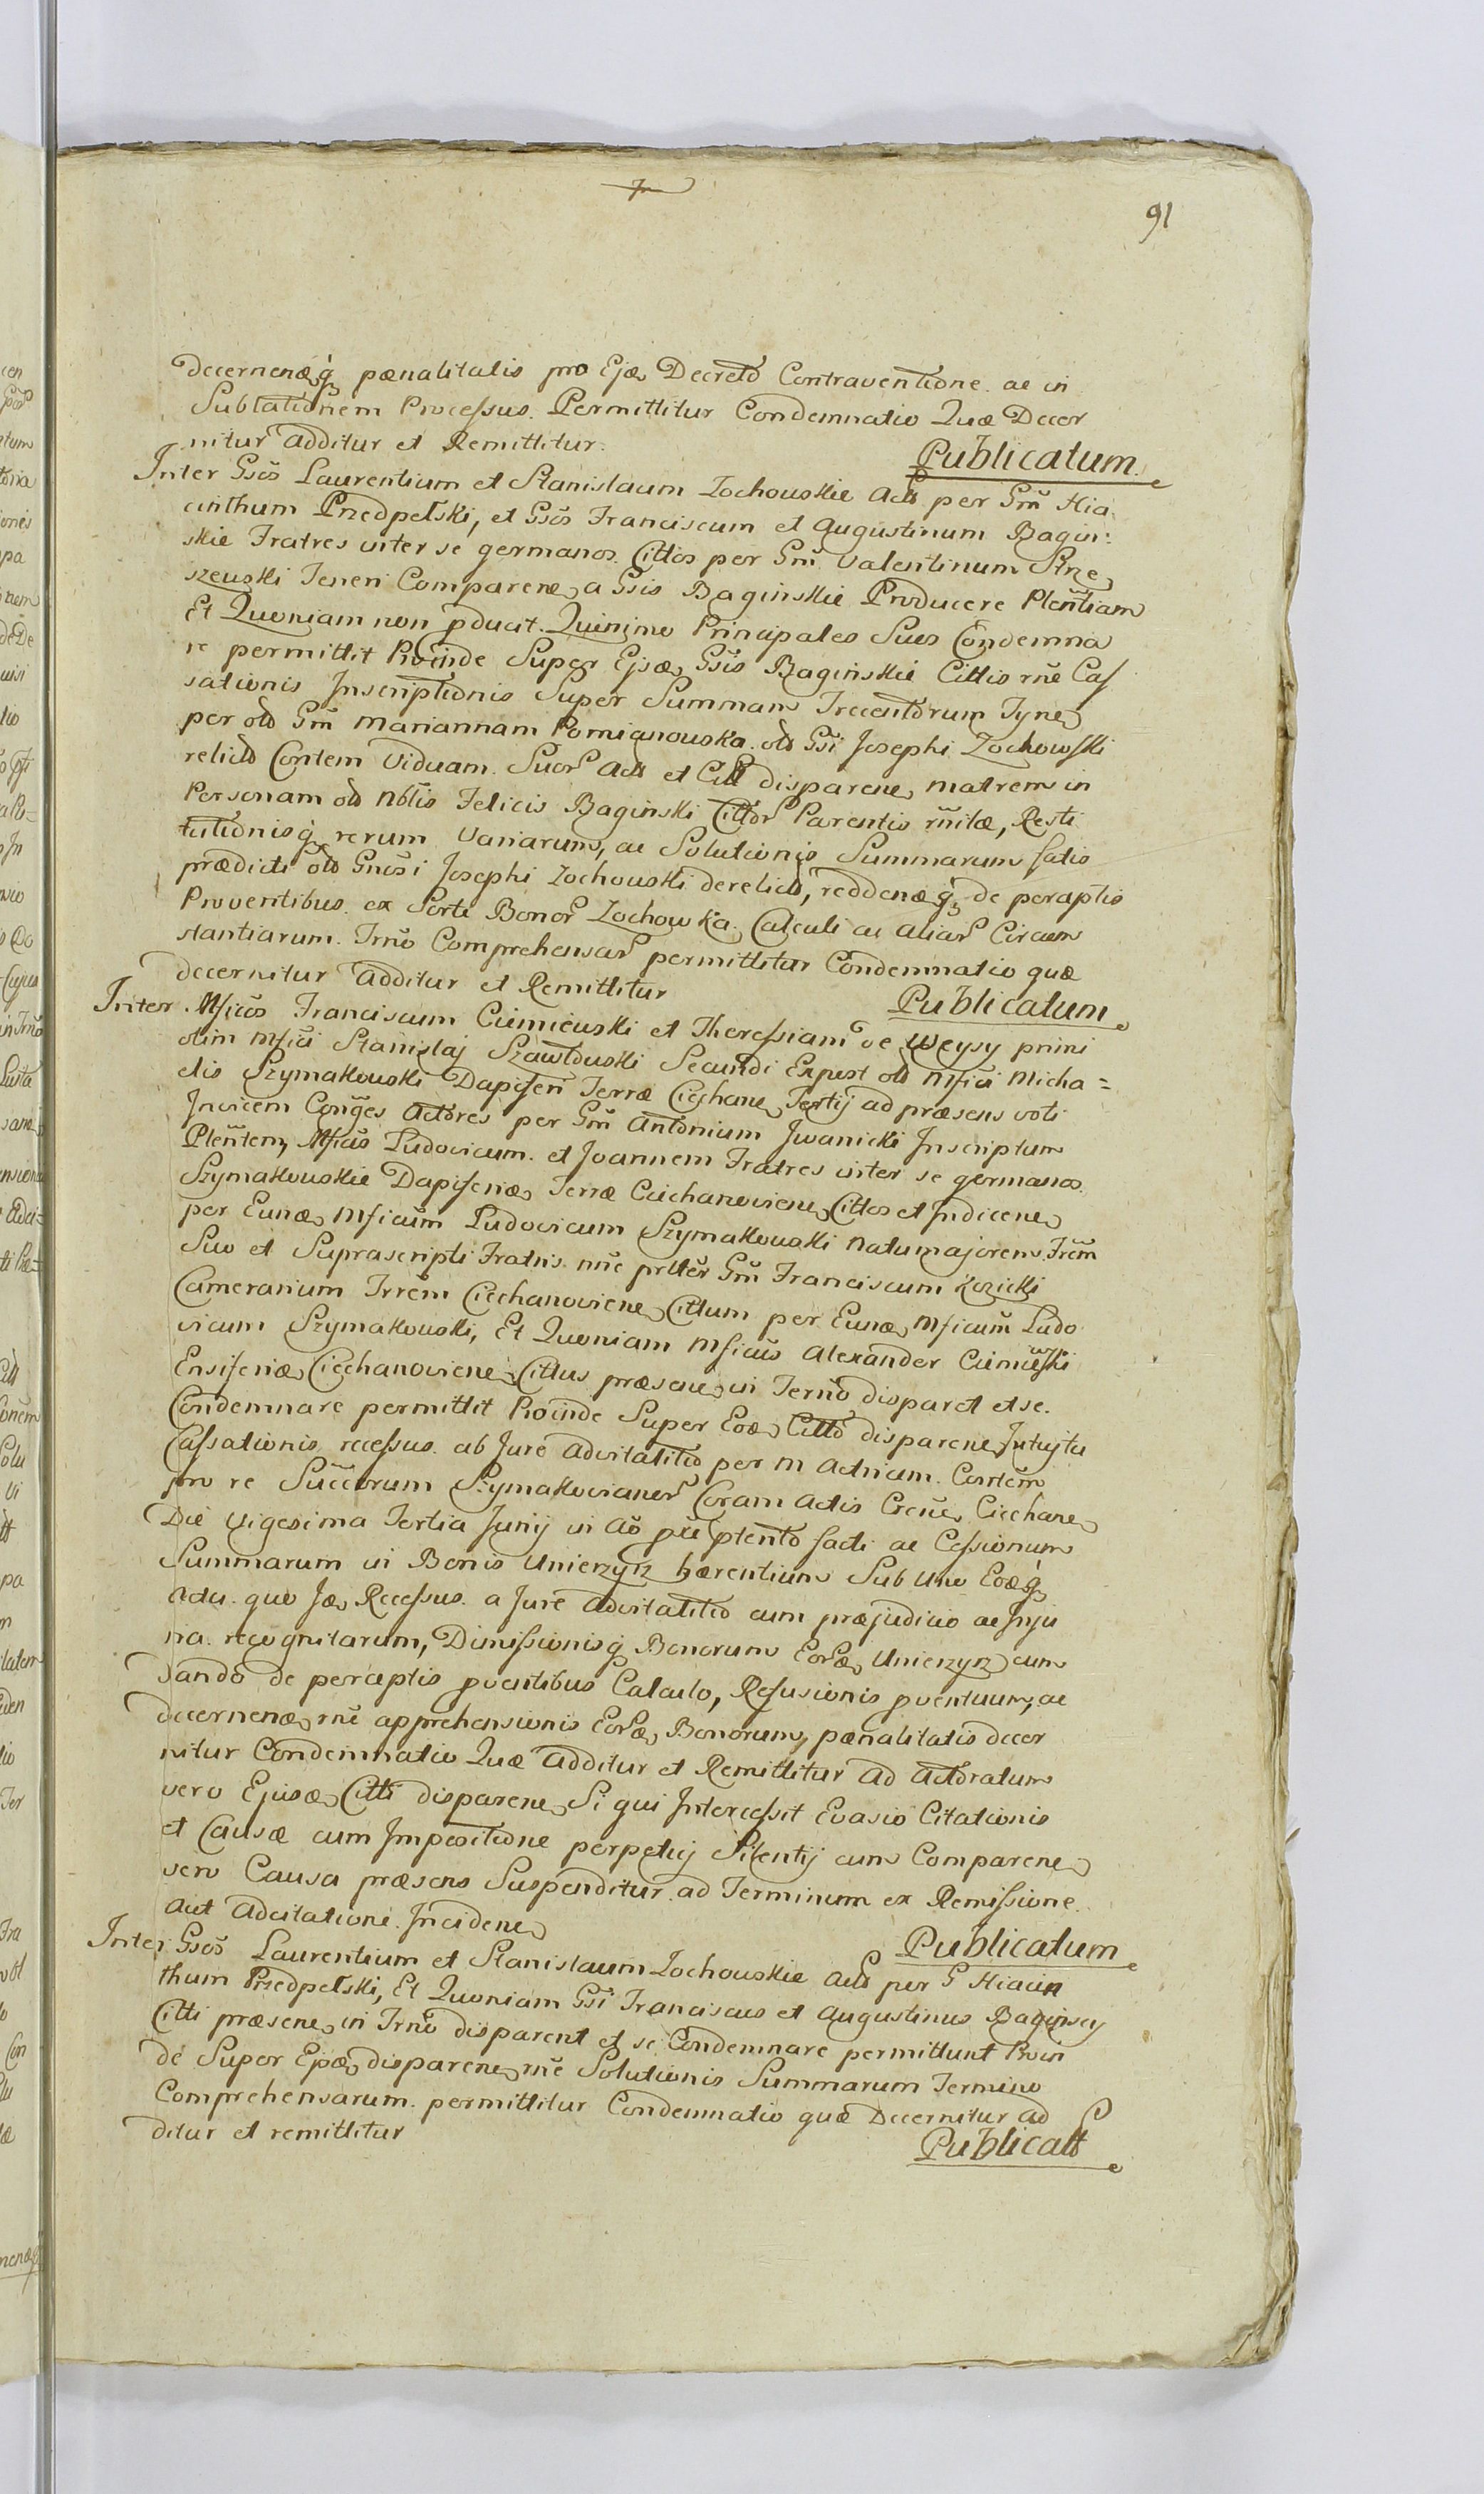 91
decernenæq, pœnalitatis pro Ejæ Decreto Contraventione ac in
Sublationem Processus. Permittitur Condemnatio Quæ Decer
nitur Additur et Remittitur.
Publicatum
Inter Gsos Laurentium et Stanislaum Zochouskie Act per Gm Hia
cinthum Przedpełski, et Gsos Franciscum et Augustinum Bagin:
skie Fratres inter se germanos Cittos per Gm Valentinum Strze
szeuski Teneri Comparene a Gsis Baginskie Producere Plentiam
Et Quoniam non pducit. Quinimo Principales Suos Condemna
re permittit Proinde Super Ejsæ Gsis Baginskie Cittis rne Cas
sationis Inscriptionis Super Summam Trecentorum Tyne
per olo Gm Mariannam Pomianouska olo Gsi Josephi Zochowski
relicto Contem Viduam Suor Act et Citt disparene matrem in
Personam olo Nblis Felicis Baginski Cittor Parentis rnitæ, Resti
tutionisq, rerum Variarum, ac Solutionis Summarum satis
prædicti olo Gnosi Josephi Zochouski derelicto, reddenæq, de peraptis
Proventibus ex Sorte Bonor Zochowka Calculi ac aliar Circum
stantiarum Trno Comprehensar permittitur Condemnatio quæ
decernitur Additur et Remittitur
Publicatum
Inter Mficos Franciscum Ciemieuski et Theressiam de Weysy primi
olim Mfici Stanislaj Szawłouski Secundi Expost olo Mfici Micha=
elis Szymakouski Dapiferi Terræ Ciechane Tertij ad præsens voti
Invicem Conges Actores per Gm Antonium Jwanicki Inscriptum
Plentem, Mficos Ludovicum et Joannem Fratres inter se germanos
Szymakouskie Dapiferiæ Terræ Ciechanoviene Cittos et Indicene
per Eunæ Mficum Ludovicum Szymakouski Natumajorem Frem
Suo et Suprascripti Fratris nne prltter Gm Franciscum Kozicki
Camerarium Trrem Ciechanoviene Cittum per Eunæ Mficum Ludo
vicum Szymakouski, Et Quoniam Mficus Alexander Ciemiewski
Ensiferiæ Ciechanoviene Cittus præsene in Terno disparet et se
Condemnare permittit Proinde Super Eoæ Citto disparene Intujtu
Cassationis recessus ab Jure Advitalitio per M Actricem Contem
pro re Succorum Szymakovianor Coram Actis Crcne Ciechane
Die Vigesima Tertia Junij in Ao pre plento facti ac Cessionum
Summarum in Bonis Unierzyz hærentium Sub Uno Eoæq,
Actu quo Jæ Recessus a Jure Advitalitio cum præjudicio ac Inju
ria recognitarum, Dimissionisq, Bonorum Eorsæ Unierzyz cum
dando de perceptis pventibus Calculo, Refusionis pventuum, ac
decernenæ rne apprehensionis Eorsæ Bonorum, pænalitatis decer
nitur Condemnatio Quæ Additur et Remittitur Ad Actoratum
vero Ejusæ Citti disparene Si qui Intercessit Evasio Citationis
et Causæ cum Impositione perpetuj Silentij cum Comparene
vero Causa præsens Suspenditur ad Terminum ex Remissione
Aut Adcitatione Incidene
Publicatum
Inter Gsos Laurentium et Stanislaum Zochouskie Act per G Hiacin
thum Przedpełski, Et Quoniam Gsi Franciscus et Augustinus Baginscy
Citti præsene in Trno disparent et se Condemnare permittunt Proin
de Super Ejsæ disparene rne Solutionis Summarum Termino
Comprehensarum permittitur Condemnatio quæ Decernitur Ad
ditur et remittitur
Publicatt